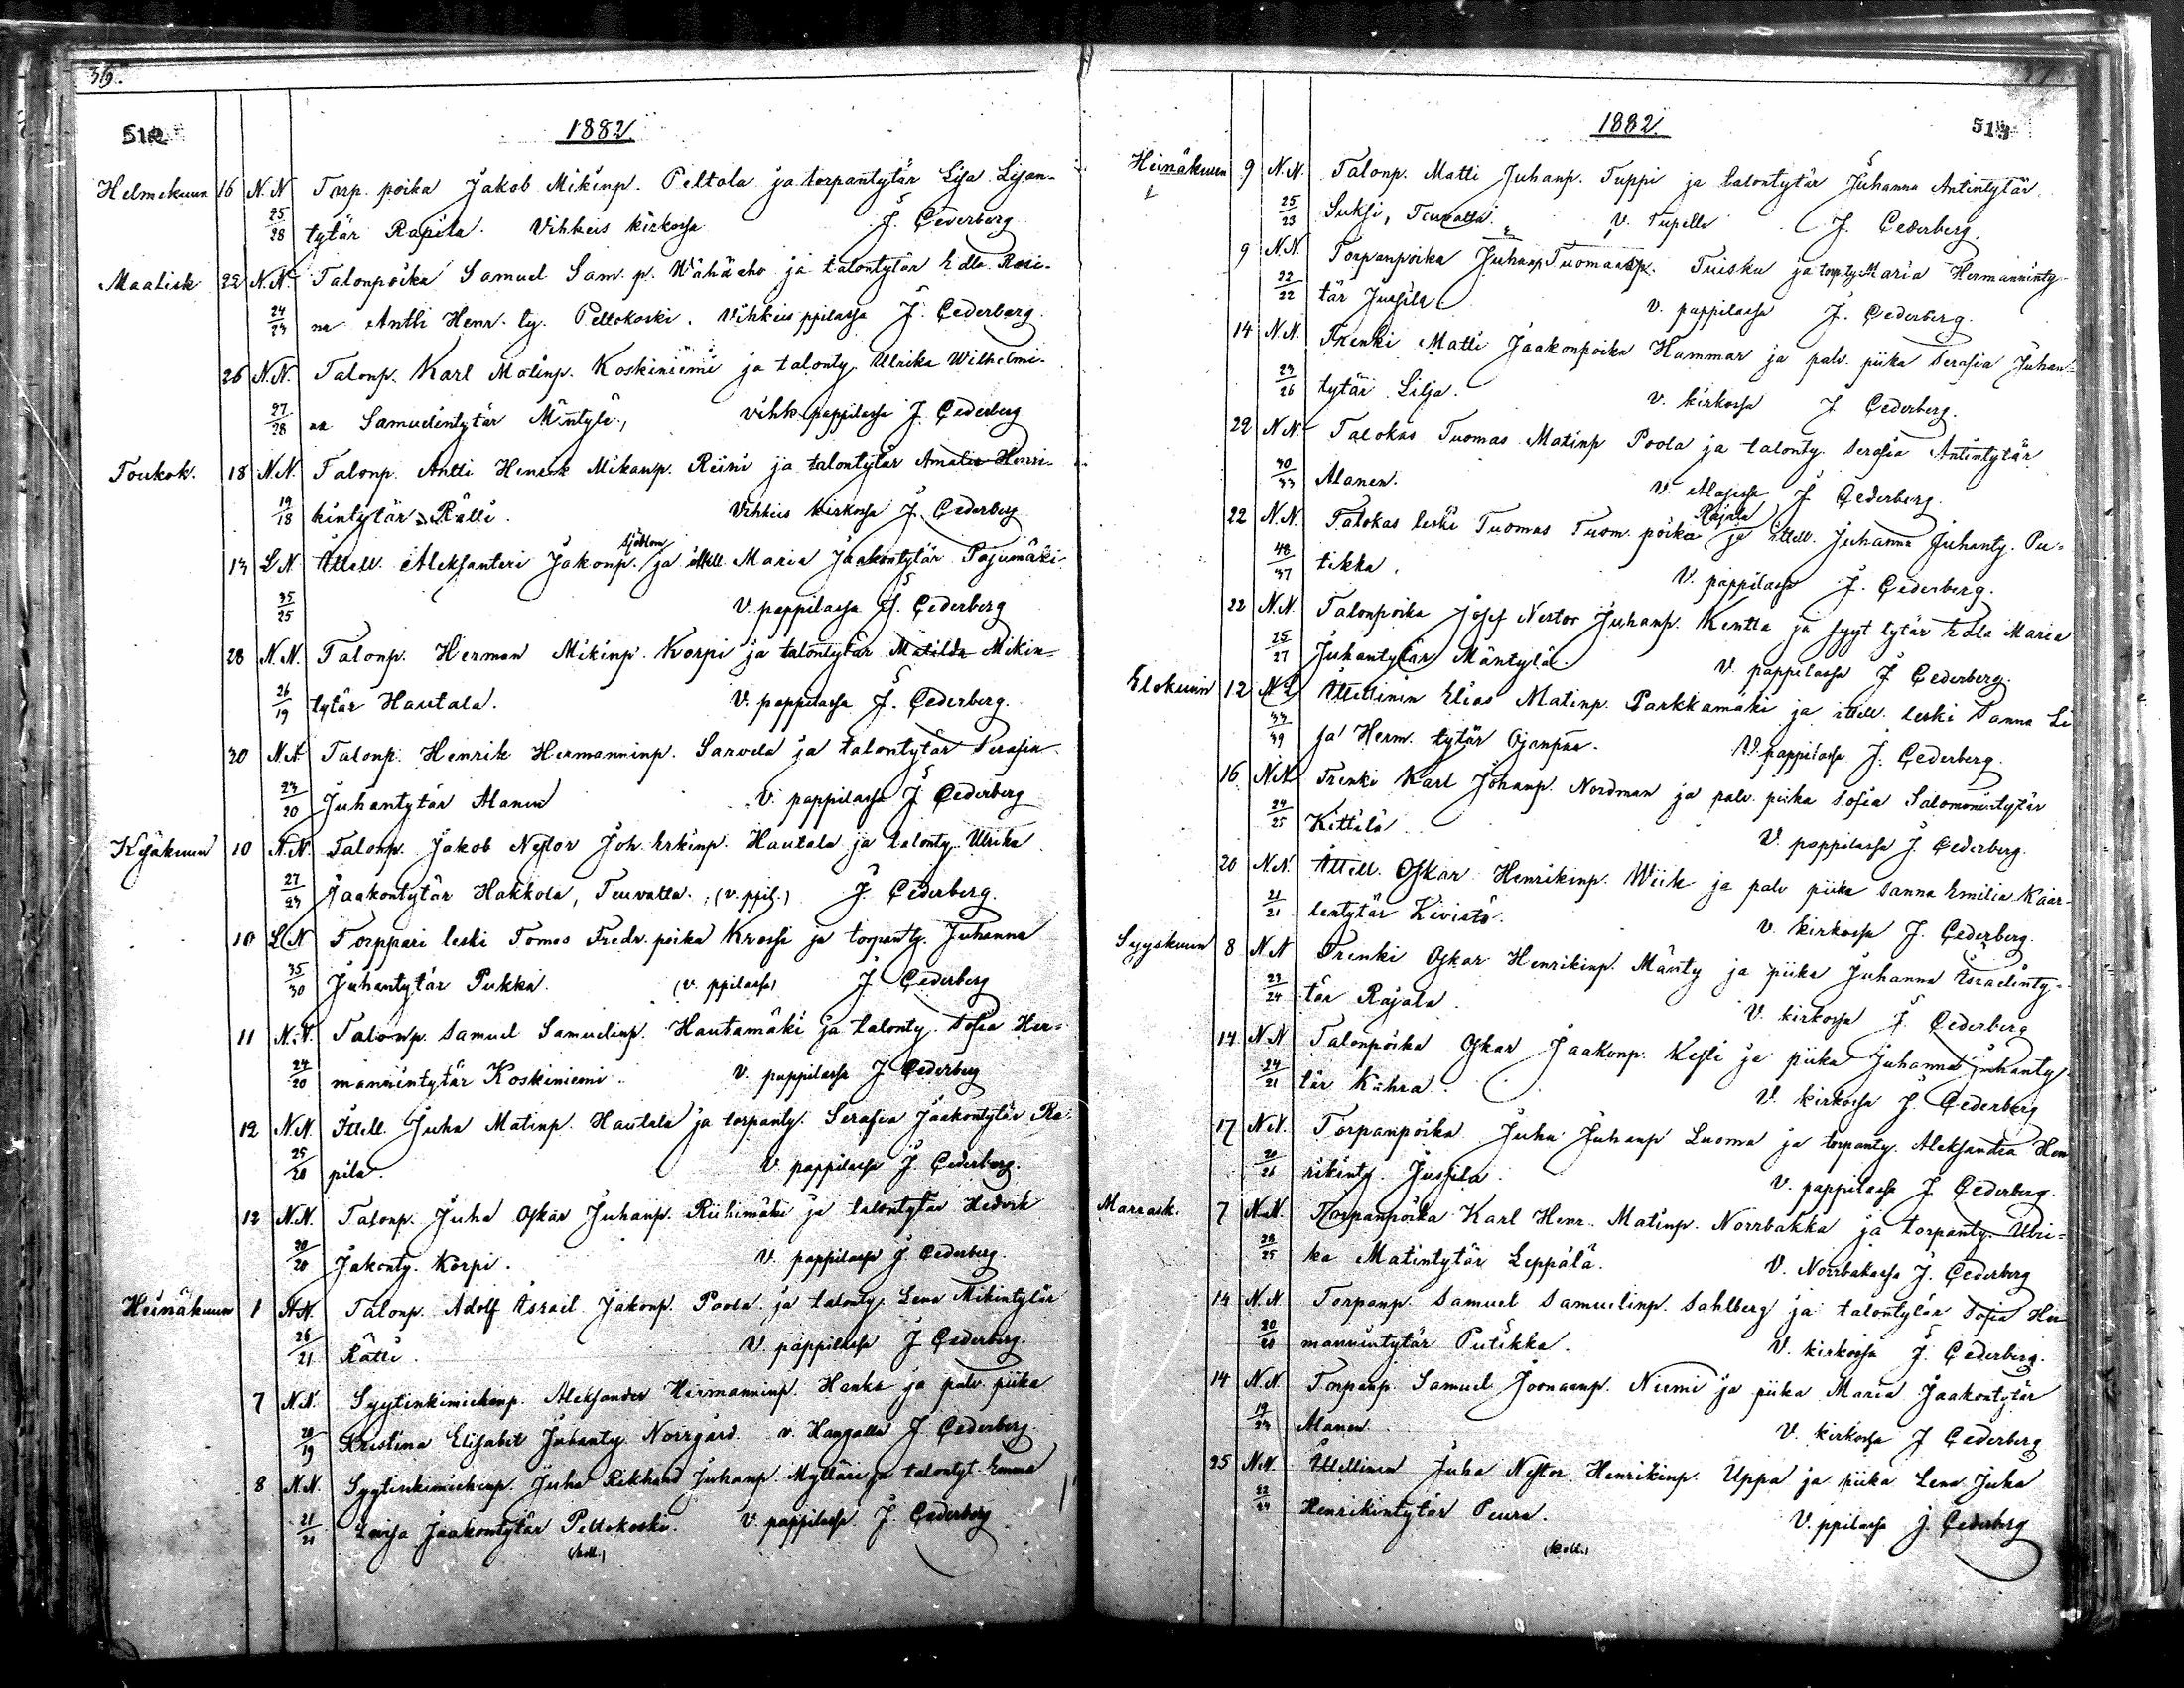 36.
512
1882
Helmekuun 16 N.N Torp. poika Jakob Mikinp. Peltola ja torpantytär Lisa Lisan-
25/28 tytär Rapila. Vihkeis kirkossa J. Cederberg
Maalisk 22 N.N. Talonpoika Samuel Sam. p. Wähäaho ja talontytär Edla Rosi-
24/23 na Antti Henr. ty. Peltokoski. Vihkeis ppilassa J. Cederberg.
26 N.N. Talonp. Karl Matinp. Koskiniemi ja talonty. Ulrika Wilhelmi-
27/28 na Samuelintytär Mäntylä, vihk. pappilassa J. Cederberg
Toukok. 18 N.N. Talonp. Antti Henrik Mikanp. Reini ja talontytär Amalia Henri-
19/18 kintytär Rätti. Vihkeis kirkossa J. Cederberg
Sjöblom
13 L N Ittell. Aleksanteri Jakonp. ja ittell Maria Jaakontytär Pajumäki
35/25 V. pappilassa J. Cederberg
28 N.N. Talonp. Herman Mikinp. Korpi ja talontytär Matilda Mikin-
26/19 tytär Hautala. V. pappilassa J. Cederberg.
30 N.N. Talonp. Henrik Hermanninp. Sarvela ja talontytär Serafia
23/20 Juhantytär Alanen V. pappilassa J. Cederberg
Kesäkuun 10 N.N. Talonp. Jakob Nestor Joh. Erkinp. Hautala ja talonty. Ulrika
27/23 Jaakontytär Hakkola, Teuvalla. (v. ppil.) J. Cederberg.
10 L N Torppari leski Tomas Fredr. poika Krossi ja torpanty. Juhanna
35/30 Juhantytär Pukka. (v. ppilassa) J. Cederberg
11 N.N. Talonp. Samuel Samuelinp. Hautamäki ja talonty. Sofia Her-
24/20 mannintytär Koskiniemi. V. pappilassa J Cederberg
12 N.N. Ittell. Juha Matinp. Hautala ja torpanty. Serafia Jaakontytär Ra-
25/20 pila. V. pappilassa J. Cederberg.
12 N.N. Talonp. Juha Oskar Juhanp. Riihimäki ja talontytär Hedvik
20/20 Jakonty. Korpi. V. pappilassa J. Cederberg.
Heinäkuun 1 N.N. Talonp. Adolf Israel Jakonp. Poola ja talonty. Lena Mikintytär
26/21 Rätti. V. pappilassa J Cederberg.
7 N.N. Syytinkimiehenp. Aleksander Hermanninp. Hanka ja palv. piika
20/19 Kristina Elisabet Juhanty. Norrgård. v. Hangalla J. Cederberg.
8 N.N. Syytinkimiehenp. Juha Rikhard Juhanp. Mylläri ja talontyt. Emma
21/21 Loisa Jaakontytär Peltokoski. V. pappilassa J. Cederberg
(koll.)
1882
513
Heinäkuun 9 N.N. Talonp. Matti Juhanp. Tuppi ja talontytär Juhanna Antintytär
25/23 Suksi, Teuvalla. V. Tupella J. Cederberg.
9 N.N. Torpanpoika Juhanp. Tuomas p. Tuisku ja torp. ty. Maria Hermanninty-
22/22 tär Jussila. V. pappilassa J. Cederberg.
14 N.N. Trenki Matti Jaakonpoika Hammar ja palv. piika Serafia Juhan-
23/26 tytär Lilja. V. kirkossa J Cederberg.
22 N.N. Talokas Tuomas Matinp Poola ja talonty. Serafia Antintytär
40/33 Alanen. V. J Cederberg.
Rajala
22 N.N. Talokas leski Tuomas Tuom. poika ja ittell. Juhanna Juhanty. Pu-
48/37 tikka. V. pappilassa J. Cederberg.
22 N.N. Talonpoika Josef Nestor Juhanp. Kentta ja syyt. tytär Edla Maria
25/27 Juhantytär Mäntylä. V. pappilassa J Cederberg.
Elokuun 12 N L Ittellinen Elias Matinp. Parkkamäki ja ittell. leski Sanna Li
33/49 sa Herm. tytär Ojanpää. V. pappilassa J. Cederberg.
16 N.N. Trenki Karl Johanp. Nordman ja palv. piika Sofia Salomonintytär
24/25 Kittilä V. pappilassa J. Cederberg.
20 N.N. Ittell. Oskar Henrikinp. Wiik ja palv piika Sanna Emilia Kaar-
21/21 lentytär Kivistö. V. kirkossa J. Cederberg.
Syyskuun 8 N N Trenki Oskar Henrikinp. Mänty ja piika Juhanna Israelinty-
23/24 tär Rajala. V. kirkossa J. Cederberg
14 N N Talonpoika Oskar Jaakonp. Kesti ja piika Juhanna Juhanty
24/21 tär Kuhna. V. kirkossa J. Cederberg
17 N.N. Torpanpoika Juha Juhanp Luoma ja torpanty. Aleksandra Hen
20/26 rikinty. Jussila. V. pappilassa J. Cederberg.
Marrask. 7 N.N. Torpanpoika Karl Henr. Matinp. Norrbakka ja torpanty. Ulri-
28/25 ka Matintytär Leppälä. V. Norrbakassa J. Cederberg
14 N.N Torpanp. Samuel Samuelinp. Sahlberg ja talontytär Sofia Her
20/20 mannintytär Putikka. V. kirkossa J. Cederberg.
14 N.N. Torpanp. Samuel Joonaanp. Niemi ja piika Maria Jaakontytär
19/24 Alanen V. kirkossa J Cederberg
25 N.N. Ittellinen Juha Nestor Henrikinp. Uppa ja piika Lena Juha
Henrikintytär Peura. V. ppilassa J. Cederberg
(koll.)